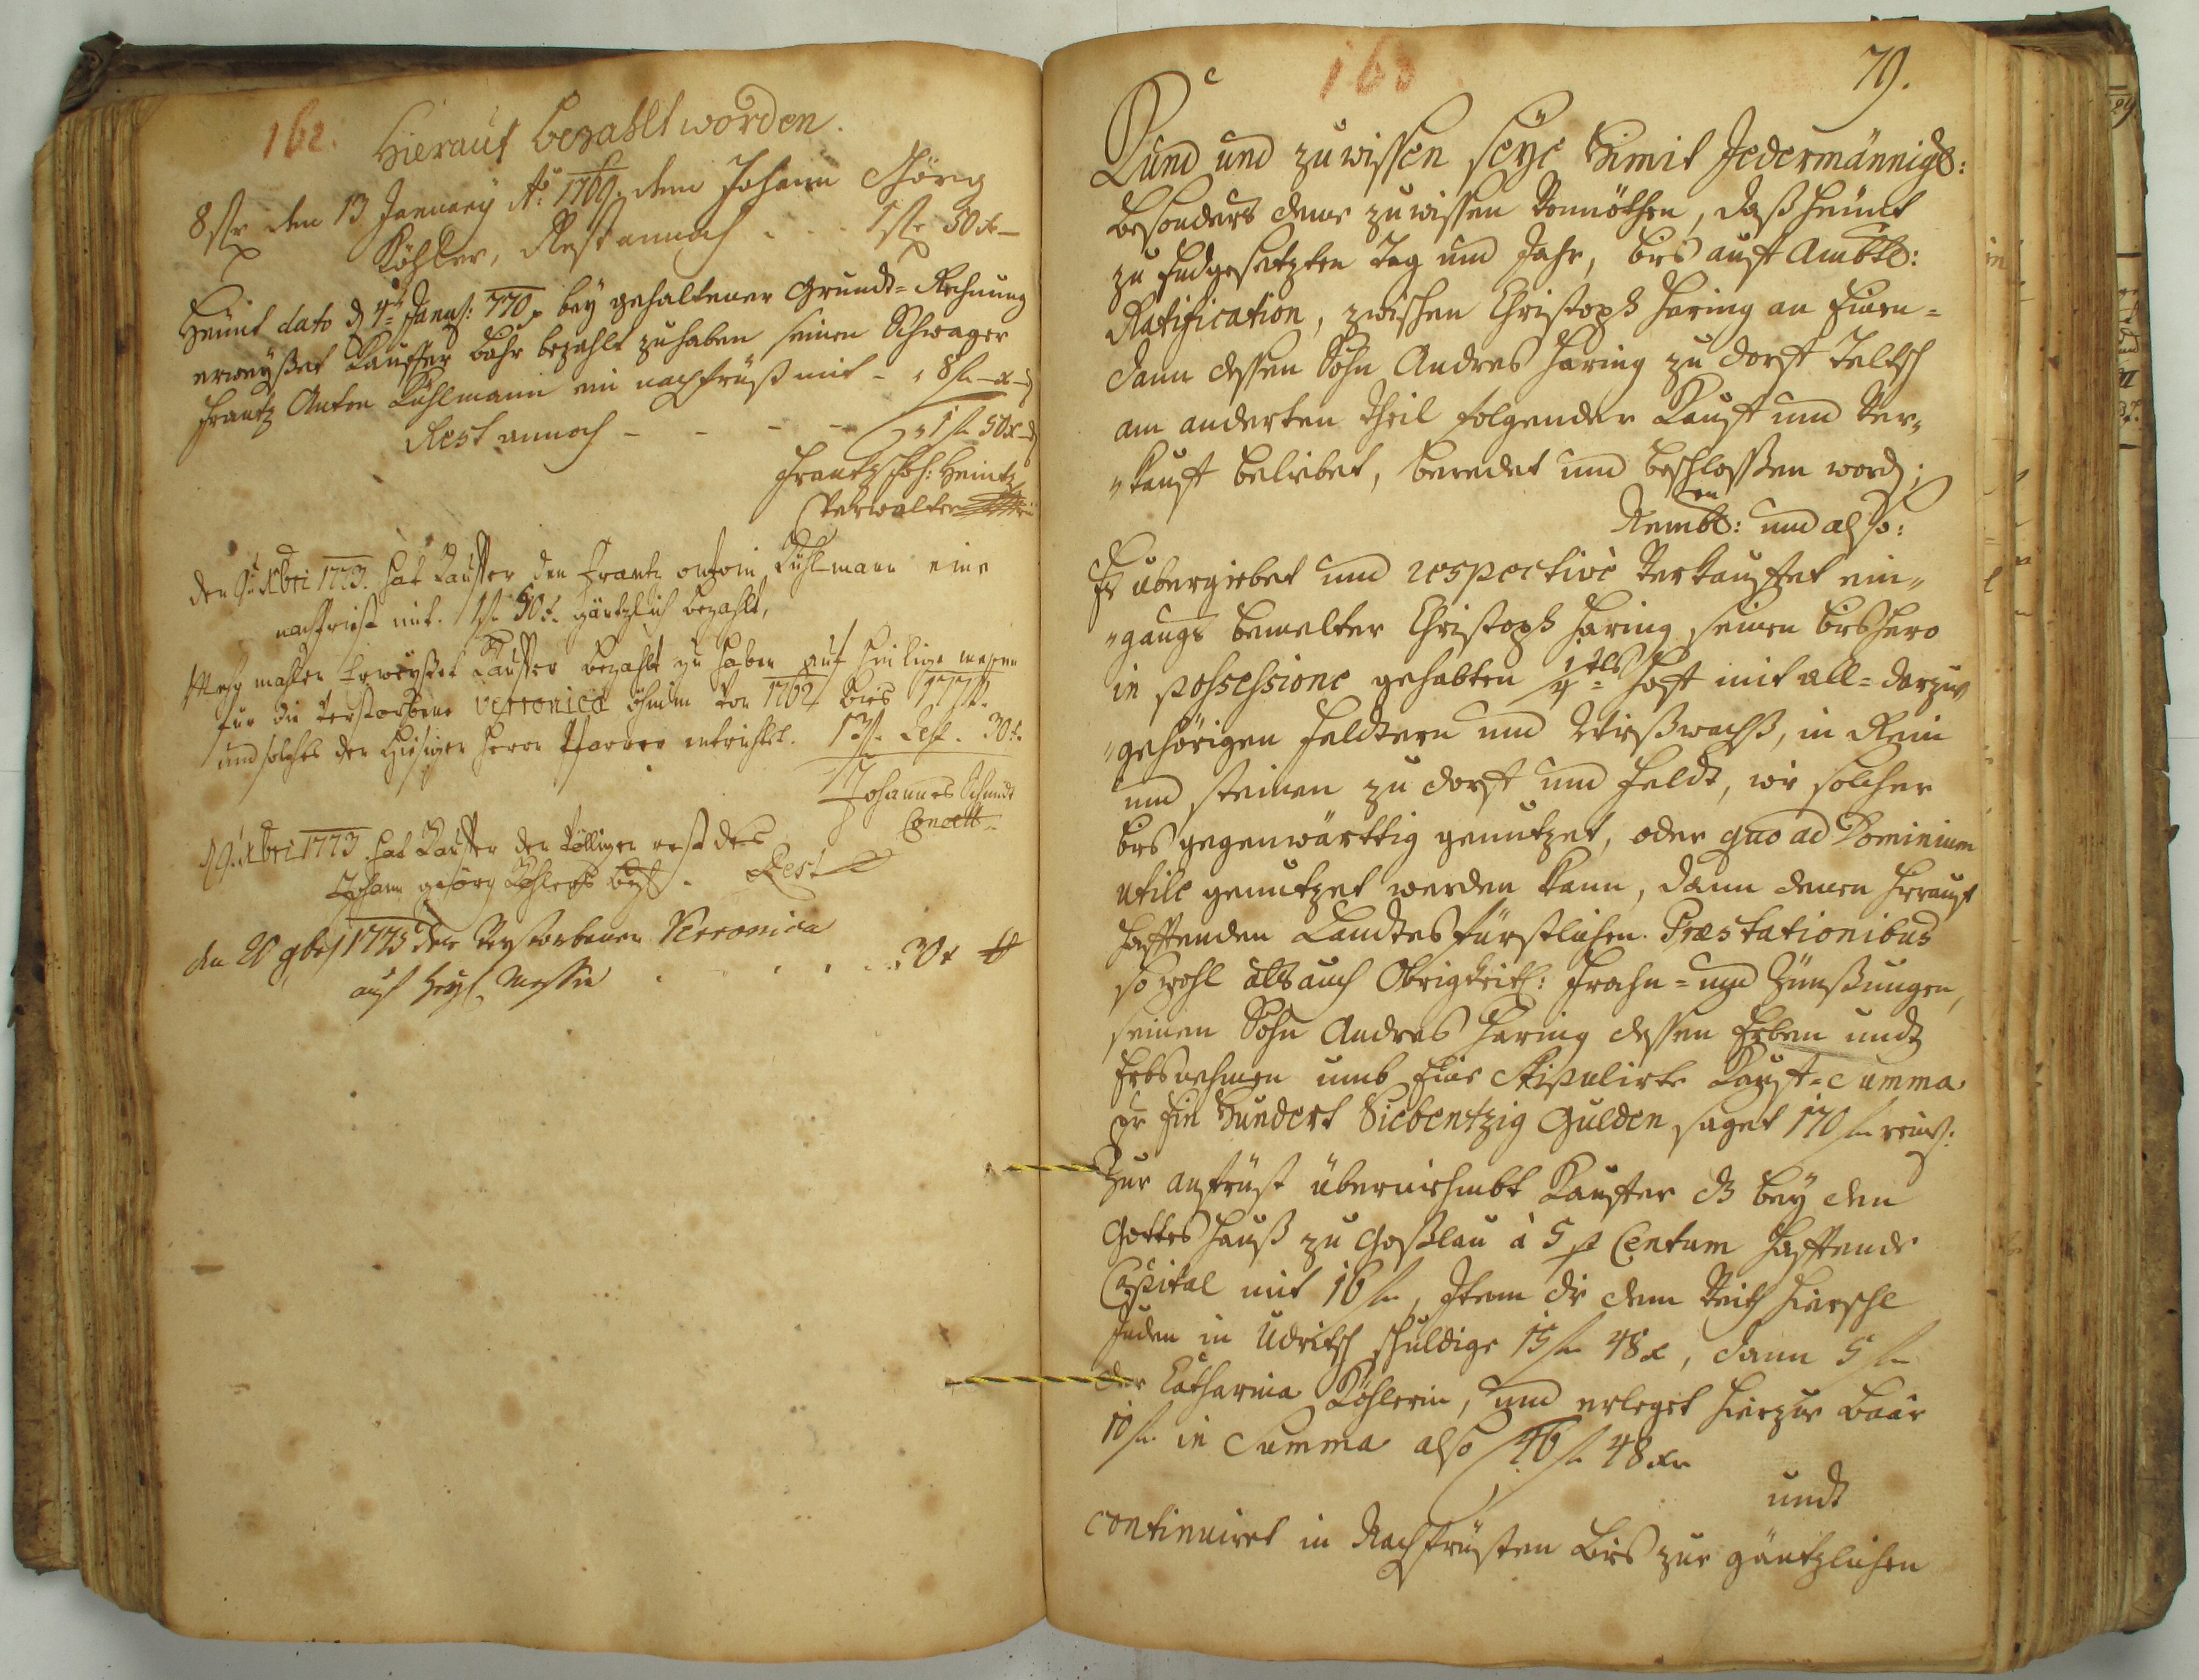 162.
Hierauf bezahlt worden.
8 fl den 13 January Ao: 1769. dem Johann Georg
Köhler, Rest annoch . . . 1 fl 50 x
Heünt dato d 4t Janua: 770 bey gehaltener Grundt=Rechnung
erweyßet Kauffer bahr bezahlt zu haben seinen Schwager
Frantz Anton Kühlmann ein nachfrüst mit - 8 fl - x - d
Rest annoch - - - - 1 fl 50 x - d
Frantz Joh: Heintz
Verwalter
den 9. Xbri 1773. hat Kauffer den Frantz Kühlmann eine
nachfrist mit. 1 fl. 50 x. gäntzlich bezahlt,
Mehr mahlen Erweyßet Kauffer bezahlt zu haben auf heilige messen
für die verstorbene Verronica von 1762 bies
und solches der hiesigen Herrn Pfarrer entrichtet. 13 fl. Rest. 30 x.
Johannes Schmidt
d 9. Xbri 1773 hat Kauffer den völligen rest des
Johann georg Köhlers bezt. Rest
den 20 9brj 1775 der Verstorbenen Verronica
auf heyl. Messen . . . . 30 x
163
79.
Kund und zu wissen seye hiemit Jedermännigl:
besonders deme zu wissen vonnöthen, daß heünt
zu Endgesetzten Tag und Jahr, bis auf Ambtl:
Ratification, zwischen Christoph Haring an Einen=
dann dessen Sohn Andres Haring zu dorff Teltsch
am anderten theil folgender Kauff und Ver„
„kauff beliebet, beredet und beschlossen worden;
Nembl: und also:
Es übergiebet und respective Verkauffet ein„
„gangs bemelter Christoph Haring seinen bishero
in possessione gehabten 1/4tls Hoff mit all=darzu
„gehörigen Feldtern und Wießwachß, in Rein
und steinen zu dorff und Feldt, wie solcher
bis gegenwärttig genutzet, oder quo ad Dominium
utile genutzet werden kann, dann denen hierauf
hafftenden Landtesfürstlichen Præstationibus
so wohl als auch Obrigkeitl: Frohn= und Zünßungen,
seinen Sohn Andres Haring dessen Erben undt
Erbsnehmen umb Eine stipulirte Kauff=Summa
pr Ein Hundert Siebentzig Gulden, saget 170 fl reinl:
Zur anfrüst übernehmbt Kauffer ds bey dem
Gottes Hauß zu Goßlau à 5 p Centum hafftende
Capital mit 16 fl, Item die dem Veith Hierschl
Juden in Udritsch schuldige 15 fl 48 x, dann 5 fl
der Catharina Köhlerin, und erleget hierzue baar
10 fl. in Summa also 46 fl 48 xr
undt
continuiret in Nachfrüsten bis zur gäntzlichen